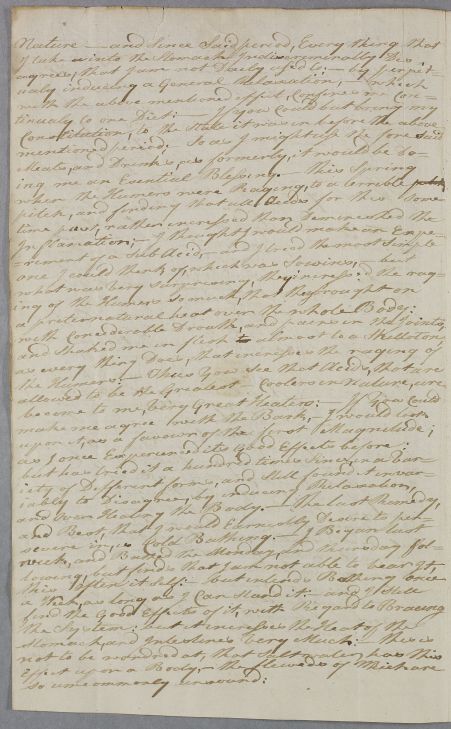 Nature — and Since Said period, Every thing that
I take into the Stomach Indiscriminally Dis-
agrees, that I am not Easily told; — by perpet-
ually inducing a General Relaxation; — which
with the above mentioned effect, Confines me Con-
tinually to one Diet: — If you Could but bring my
Constitution, to the State it was in before the above
mentioned period, So as I might use the fore Said
Meats, and Drinks, as formerly, it would be do-
ing me an Esential Blessing. — this Spring
when the Humers were Raging, to a terrible
pitch, and finding that all Acids for this Some
time past, rather increased than Deminished the
Inflamation; — I thought I would make an Expe-
rement of a Sub Acid, — and I tried the most Simple
one I could think of, which was — but
what was very Surprising, they incress'd the rag-
ing of the Humers So much, that they brought on
a preternatural heat over the whole Body:
with Considerable Drouth, and pains in the Joints,
and Shaked me in flesh almost to a Skelleton
as every thing Does, that incresses the raging of
the Humers: — Thus you See that Acids, that are
allowed to be the Greatest Coolers in Nature, are
become to me, very Great Heaters: — If you Could
make me agree with the Bark, I would look
upon it, as a favour of the first Magnitude;
as I once Experienced its good Effects before:
but has tried it a hundred times Since, in a Var-
iety of Different forms, and Still found it invar-
iably to Disagree, by inducing Relaxation,
and over Heating the Body. — the last Remedy,
and Best, that I would Earnestly Desire to per-
severe in, is Cold Bathing. — I Began last
week, and Bathed the Monday, and thursday fol-
lowing, but finds that I am not able to bear It,
this often it Self: — but intends Bathing once
a Week, as long as I Can Stand it: — and I Still
find the Good Effects of it, with Regard to Bracing
the System, but it incresses the Heat of the
Stomach, and Intestines very Much: — this is
not to be wondred at, that Salt water, has this
Effect upon a Body, — the fluids of Which are
So uncommonly unsound: